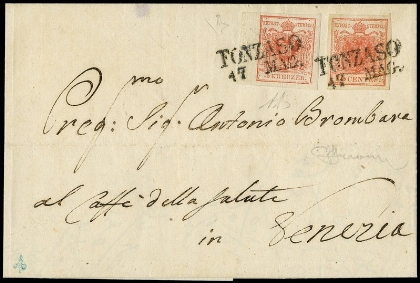 FONZASO FONZASO
17 MAG. 17 MAG.
KREUZER CENT
Preg:mo Sig: Antonio Brombara
al Caffè della Salute
in Venezia